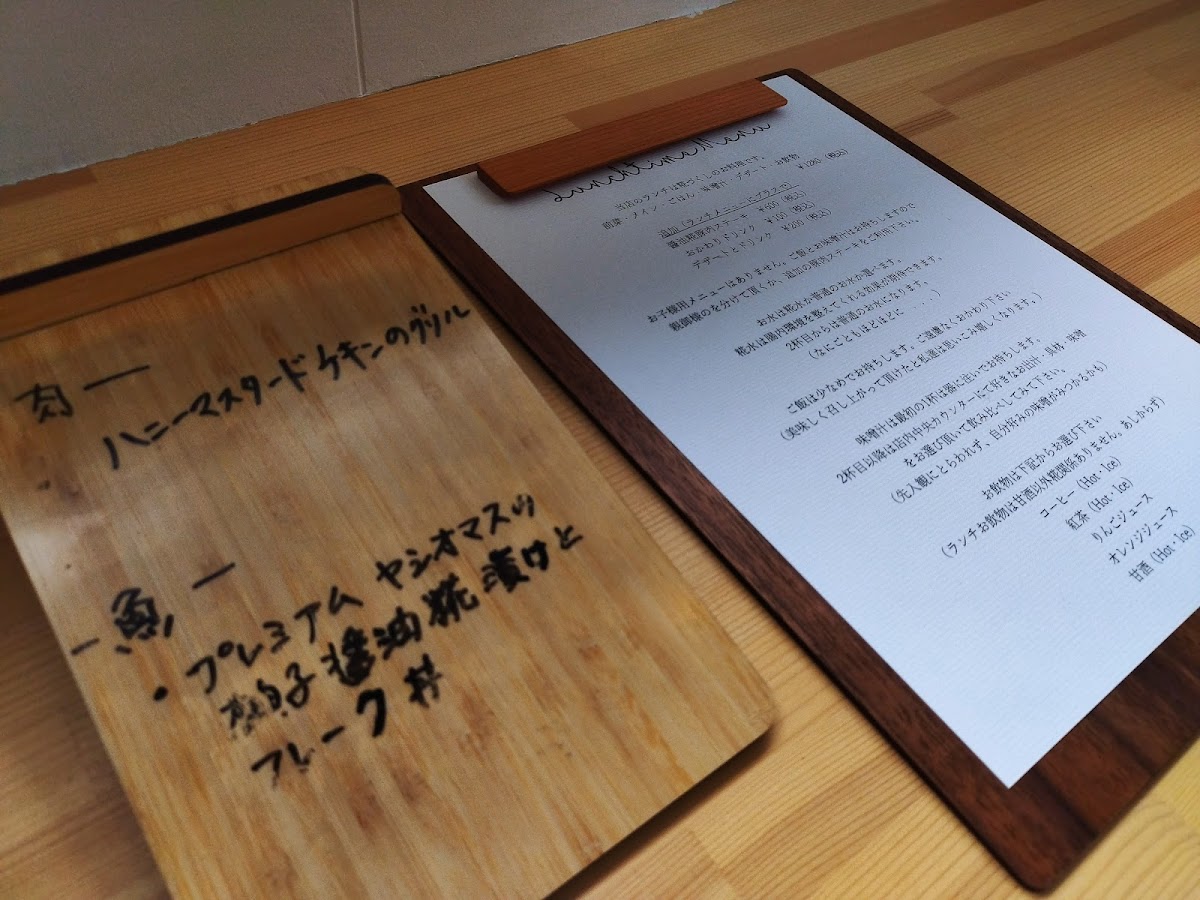 肉ー
ハニーマスタードチキンのグリル
ー魚ー
・プレミアム ヤシオマスの
親子醤油糀漬けと
フレーク丼
Lunchtime Menu
当店のランチは糀づくしのお料理です。
前菜・メイン・ごはん・味噌汁・デザート・お飲物 ¥1280（税込）
追加（ランチメニューにプラスで）
醤油糀豚肉ステーキ ¥600（税込）
おかわりドリンク ¥100（税込）
デザートとドリンク ¥200（税込）
お子様用メニューはありません。ご飯とお味噌汁はお持ちしますので
親御様のを分けて頂くか、追加の豚肉ステーキをご利用下さい。
お水は糀水か普通のお水が選べます。
糀水は腸内環境を整えてくれる効果が期待できます。
2杯目からは普通のお水になります。
（なにごともほどほどに．．．．）
ご飯は少なめでお持ちします。ご遠慮なくおかわり下さい
（美味しく召し上がって頂けたと私達は思いこみ嬉しくなります。）
味噌汁は最初の1杯は器に注いでお持ちします。
2杯目以降は店内中央カウンターにて好きなお出汁・具材・味噌
をお選び頂いて飲み比べしてみて下さい。
（先入観にとらわれず、自分好みの味噌がみつかるかも）
お飲物は下記からお選び下さい
（ランチお飲物は甘酒以外糀関係ありません。あしからず）
コーヒー（Hot・Ice）
紅茶（Hot・Ice）
りんごジュース
オレンジジュース
甘酒（Hot・Ice）